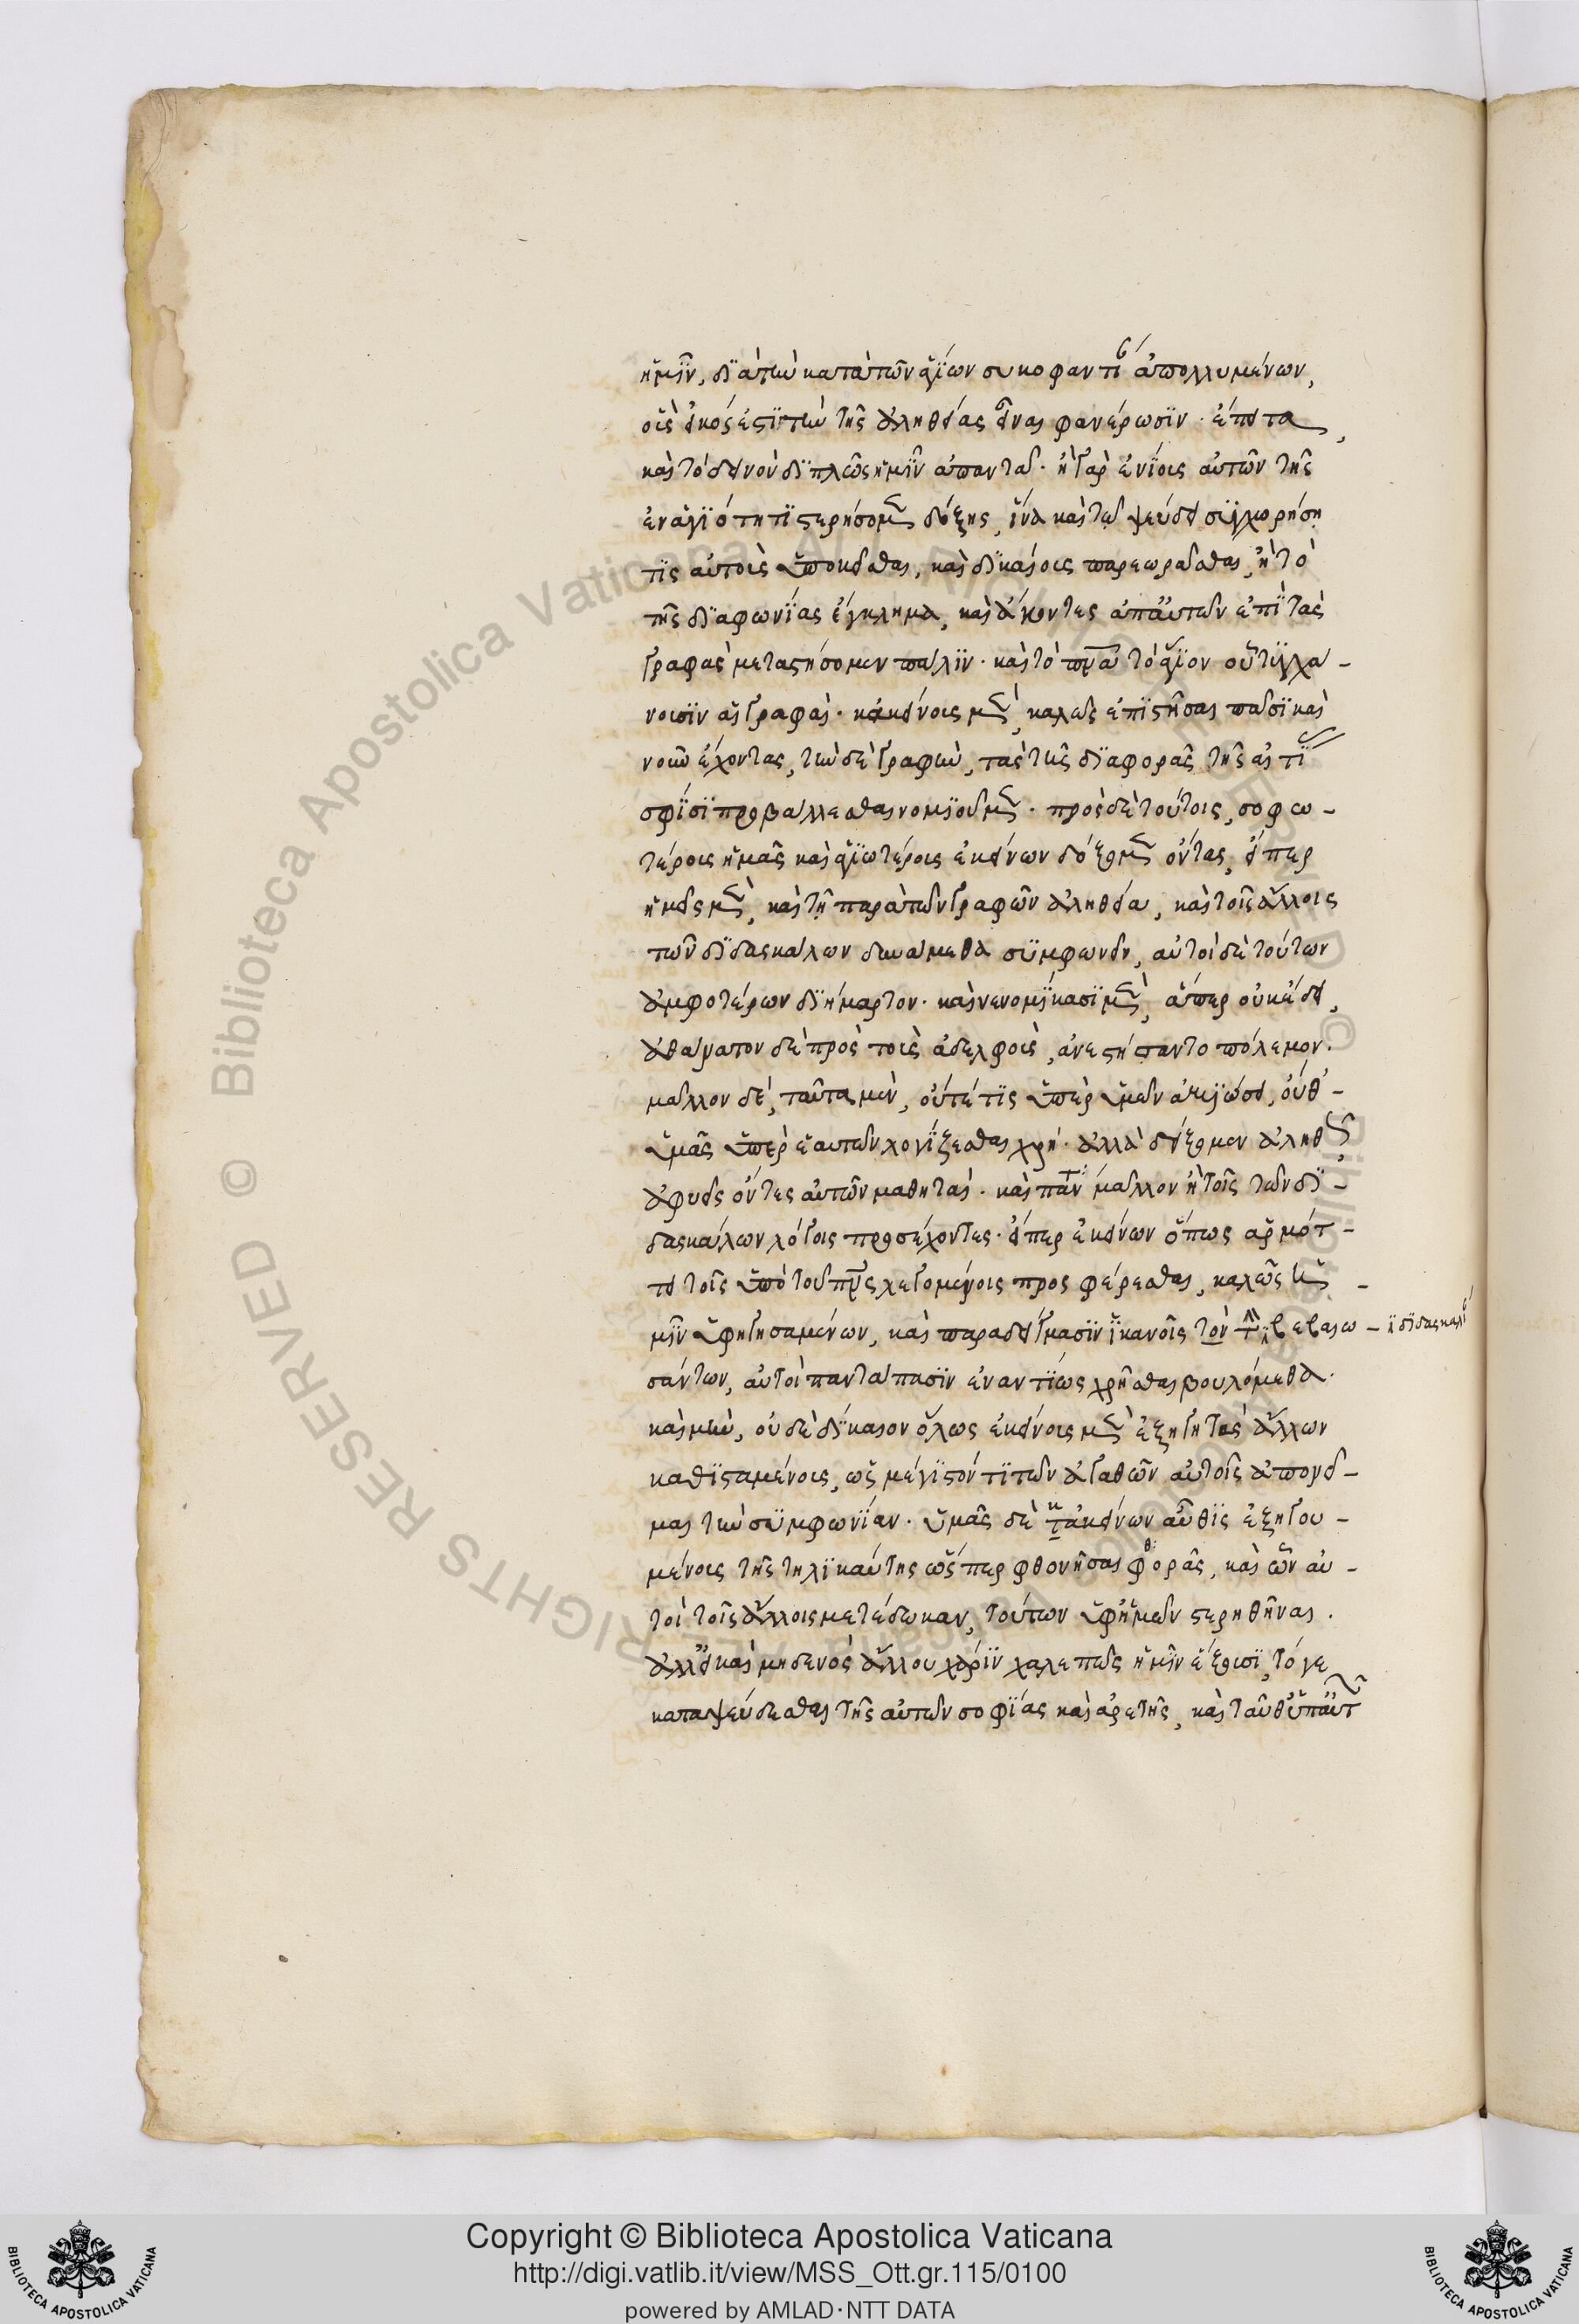 ἡμῖν, διὰ τὴν κατὰ τῶν ἁγίων συκοφαντί ἀπολλυμένων,
οἷς εἰκός ἐστι τὴν τῆς ἀληθείας εἶναι φανέρωσιν. ἔπειτα,
καὶ τὸ δεινὸν διπλῶς ἡμῖν ἀπαντᾶ. ἢ γὰρ ἐνίοις αὐτῶν τῆς
ἐν ἁγιότητι στερήσομεν δόξης, ἵνα καὶ τῶ ψεύδει συγχωρήσῃ
τις αὐτοὺς ὑποκεῖσθαι, καὶ δικαίοις παρεωρᾶσθαι, ἢ τὸ
τῆς διαφωνίας ἔγκλημα, καὶ ἄκοντες ἀπ' αὐτῶν ἐπὶ τὰς
γραφὰς μεταστήσομεν πάλιν. καὶ τὸ πνα τὸ ἅγιον οὗ τυγχά-
νουσιν αἱ γραφαί. κἀκείνοις μὲν, καλῶς ἐπιστῆσαι πᾶσι καὶ
νοῦν ἔχοντας, τὴν δὲ γραφὴν, τὰς τῆς διαφορᾶς τῆς αἰτί
σφίσι προβάλλεσθαι νομιοῦμεν. πρὸς δὲ τούτοις, σοφω-
τέροις ἡμᾶς καὶ ἁγιωτέροις ἐκείνων δόξομεν ὄντας, εἴπερ
ἡμεῖς μὲν, καὶ τῇ παρὰ τῶν γραφῶν ἀληθεία, καὶ τοῖς ἄλλοις
τῶν διδασκάλων δυνάμεθα συμφωνεῖν, αὐτοὶ δὲ τούτων
ἀμφοτέρων διήμαρτον. καὶ νενομίκασι μὲν, ἅπερ οὐκ ἔδει,
ἀθάνατον δὲ πρὸς τοὺς ἀδελφοὺς, ἀνεστήσαντο πόλεμον.
μᾶλλον δὲ, ταῦτα μὲν, οὔτέ τις ὑπὲρ ὑμῶν ἀξιώσει, οὔθ'
ὑμᾶς ὑπὲρ ἑαυτῶν λογίζεσθαι χρή. ἀλλὰ δόξομεν ἀληθ
ἀφυεῖς ὄντες αὐτῶν μαθηταί. καὶ παντί μᾶλλον ἢ τοῖς τῶν δι-
δασκάλων λόγοις προσέχοντες. εἴπερ ἐκείνων ὅπως ἁρμότ-
τει τοῖς ὑπὸ τοῦ πνς λεγομένοις προσφέρεσθαι, καλῶς ἡ-
μῖν ὑφηγησαμένων, καὶ παραδείγμασιν ἱκανοῖς τὸν βεβαιω-
σάντων, αὐτοὶ παντάπασιν ἐναντίως χρῆσθαι βουλόμεθα.
καὶ μὴν, οὐδὲ δίκαιον ὅλως ἐκείνοις μὲν ἐξηγητὰς ἄλλων
καθισταμένοις, ὡς μέγιστόν τι τῶν ἀγαθῶν αὐτοῖς ἀπονεῖ-
μαι τὴν συμφωνίαν. ὑμᾶς δὲ τἀκείνων αὖθις ἐξηγου-
μένοις τῆς τηλικαύτης ὥσπερ φθονῆσαι φορᾶς, καὶ ὧν αὐ-
τοὶ τοῖς ἄλλοις μετέδωκαν, τούτων ὑφ' ἡμῶν στερηθῆναι.
ἀλλ' εἰ καὶ μηδενὸς ἄλλου χάριν χαλεπῶς ἡμῖν ἕξουσι, τό γε
καταψεύδεσθαι τῆς αὐτῶν σοφίας καὶ ἀρετῆς, καὶ ταῦθ' ὑπ' αὐτ
Copyright © Biblioteca Apostolica Vaticana
http://digi.vatlib.it/view/MSS_Ott.gr.115/0100
powered by AMLAD·NTT DATA